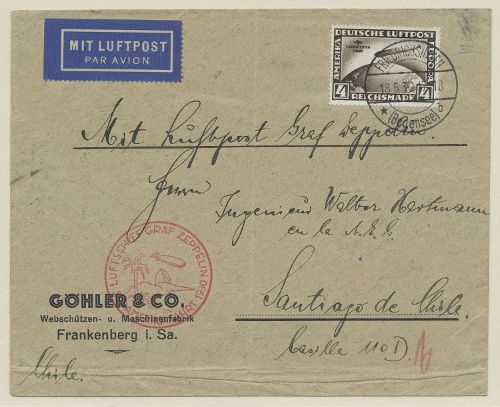 MIT LUFTPOST
PAR AVION
DEUTSCHE LUFTPOST
SÜDAMERIKA
FAHRT
4 REICHSMARK 4
FRIEDRICHSHAFEN
18.5.
(Bodensee)
Mit Luftpost Graf Zeppelin
Herrn
Ingenieur Walter Hartmann
en la A.E.G.
Santiago de Chile.
Casilla 110 D.
LUFTSCHIFF GRAF ZEPPELIN
SÜDAMERIKAFAHRT 1930
GÖHLER & CO.
Webschützen- u. Maschinenfabrik
Frankenberg i. Sa.
Chile.